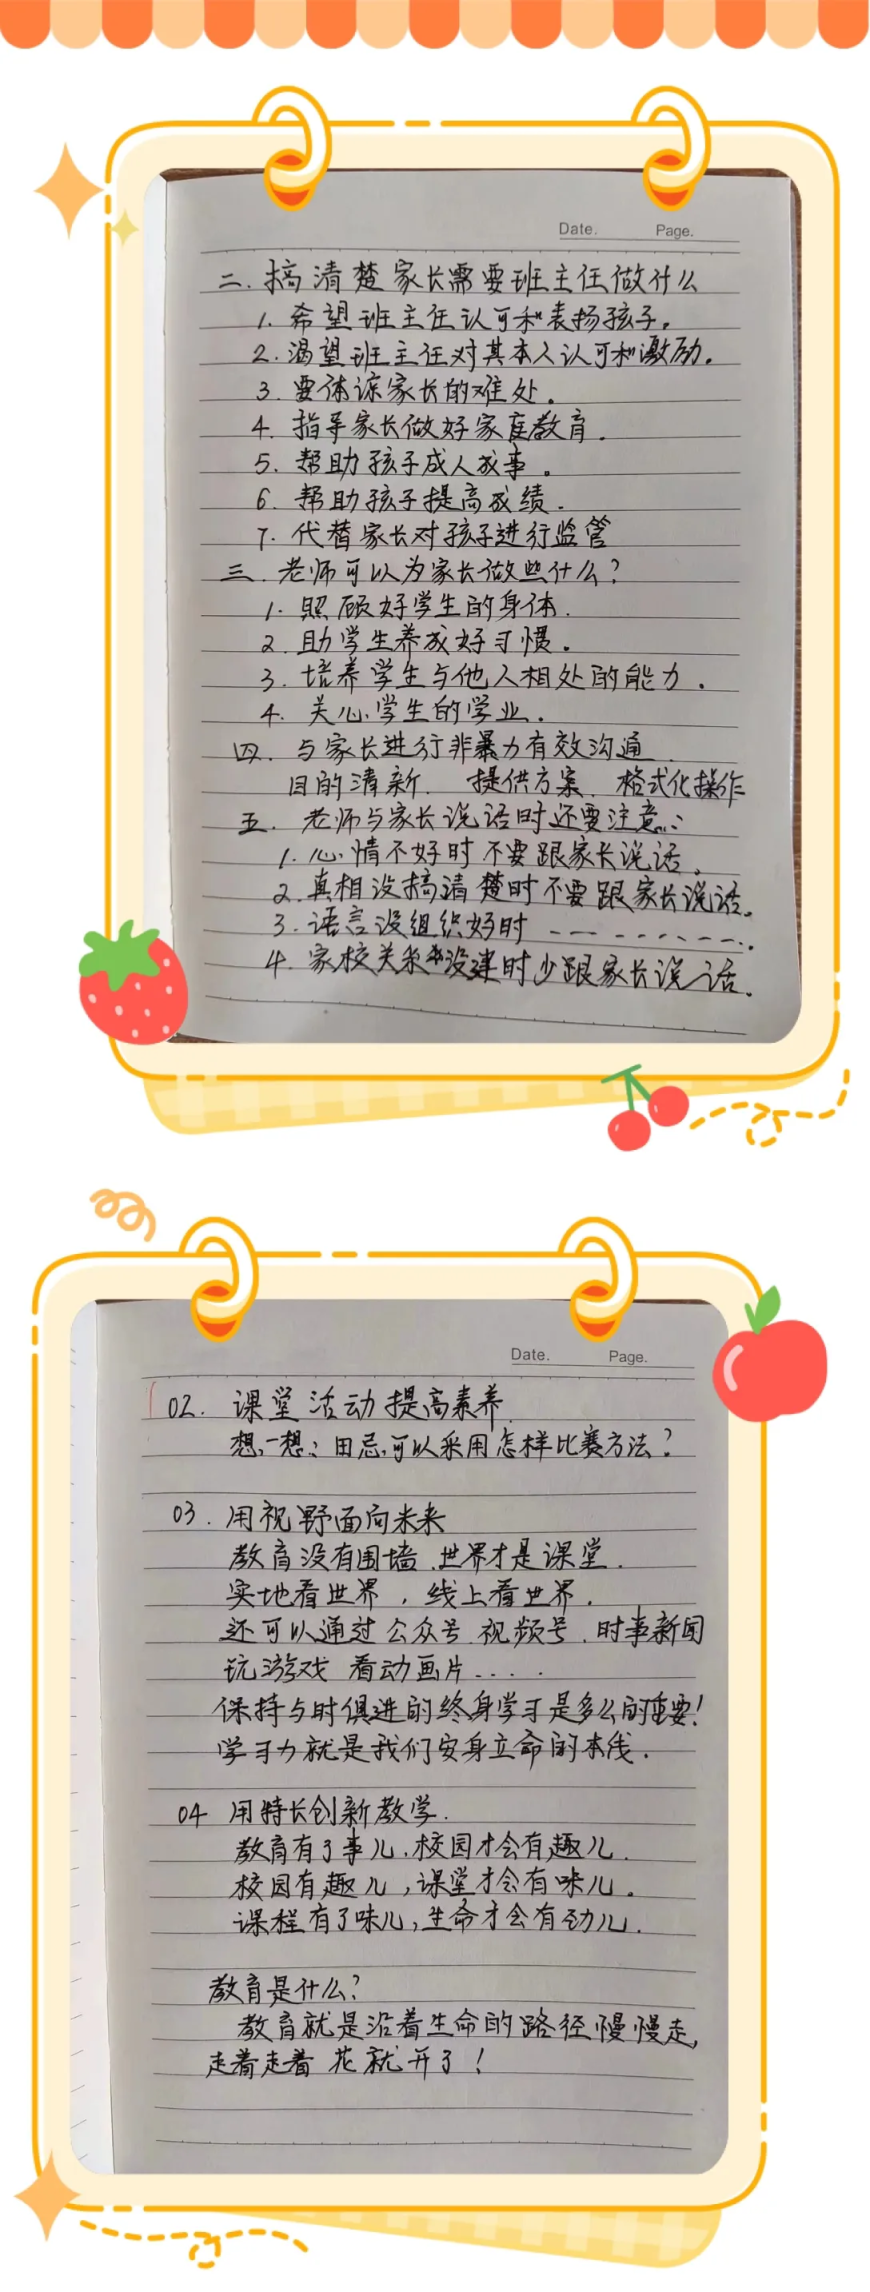 Date. Page.
二. 搞清楚家长需要班主任做什么
1. 希望班主任认可和表扬孩子。
2. 渴望班主任对其本人认可和激励。
3. 要体谅家长的难处。
4. 指导家长做好家庭教育.
5. 帮助孩子成人成事。
6. 帮助孩子提高成绩.
7. 代替家长对孩子进行监管
三. 老师可以为家长做些什么?
1. 照顾好学生的身体.
2. 助学生养成好习惯。
3. 培养学生与他人相处的能力.
4. 关心学生的学业.
四. 与家长进行非暴力有效沟通.
目的清新. 提供方案. 格式化操作
五. 老师与家长说话时还要注意:
1. 心情不好时不要跟家长说话。
2. 真相没搞清楚时不要跟家长说话。
3. 语言没组织好时 ---------.
4. 家校关系没建时少跟家长说话。
Date. Page.
02. 课堂活动提高素养.
想一想: 田忌可以采用怎样比赛方法?
03. 用视野面向未来
教育没有围墙.世界才是课堂.
实地看世界,线上看世界.
还可以通过公众号.视频号.时事新闻
玩游戏 看动画片....
保持与时俱进的终身学习是多么的重要!
学习力就是我们安身立命的本钱.
04 用特长创新教学.
教育有了事儿.校园才会有趣儿.
校园有趣儿,课堂才会有味儿。
课程有了味儿,生命才会有劲儿.
教育是什么?
教育就是沿着生命的路径慢慢走,
走着走着 花就开了!